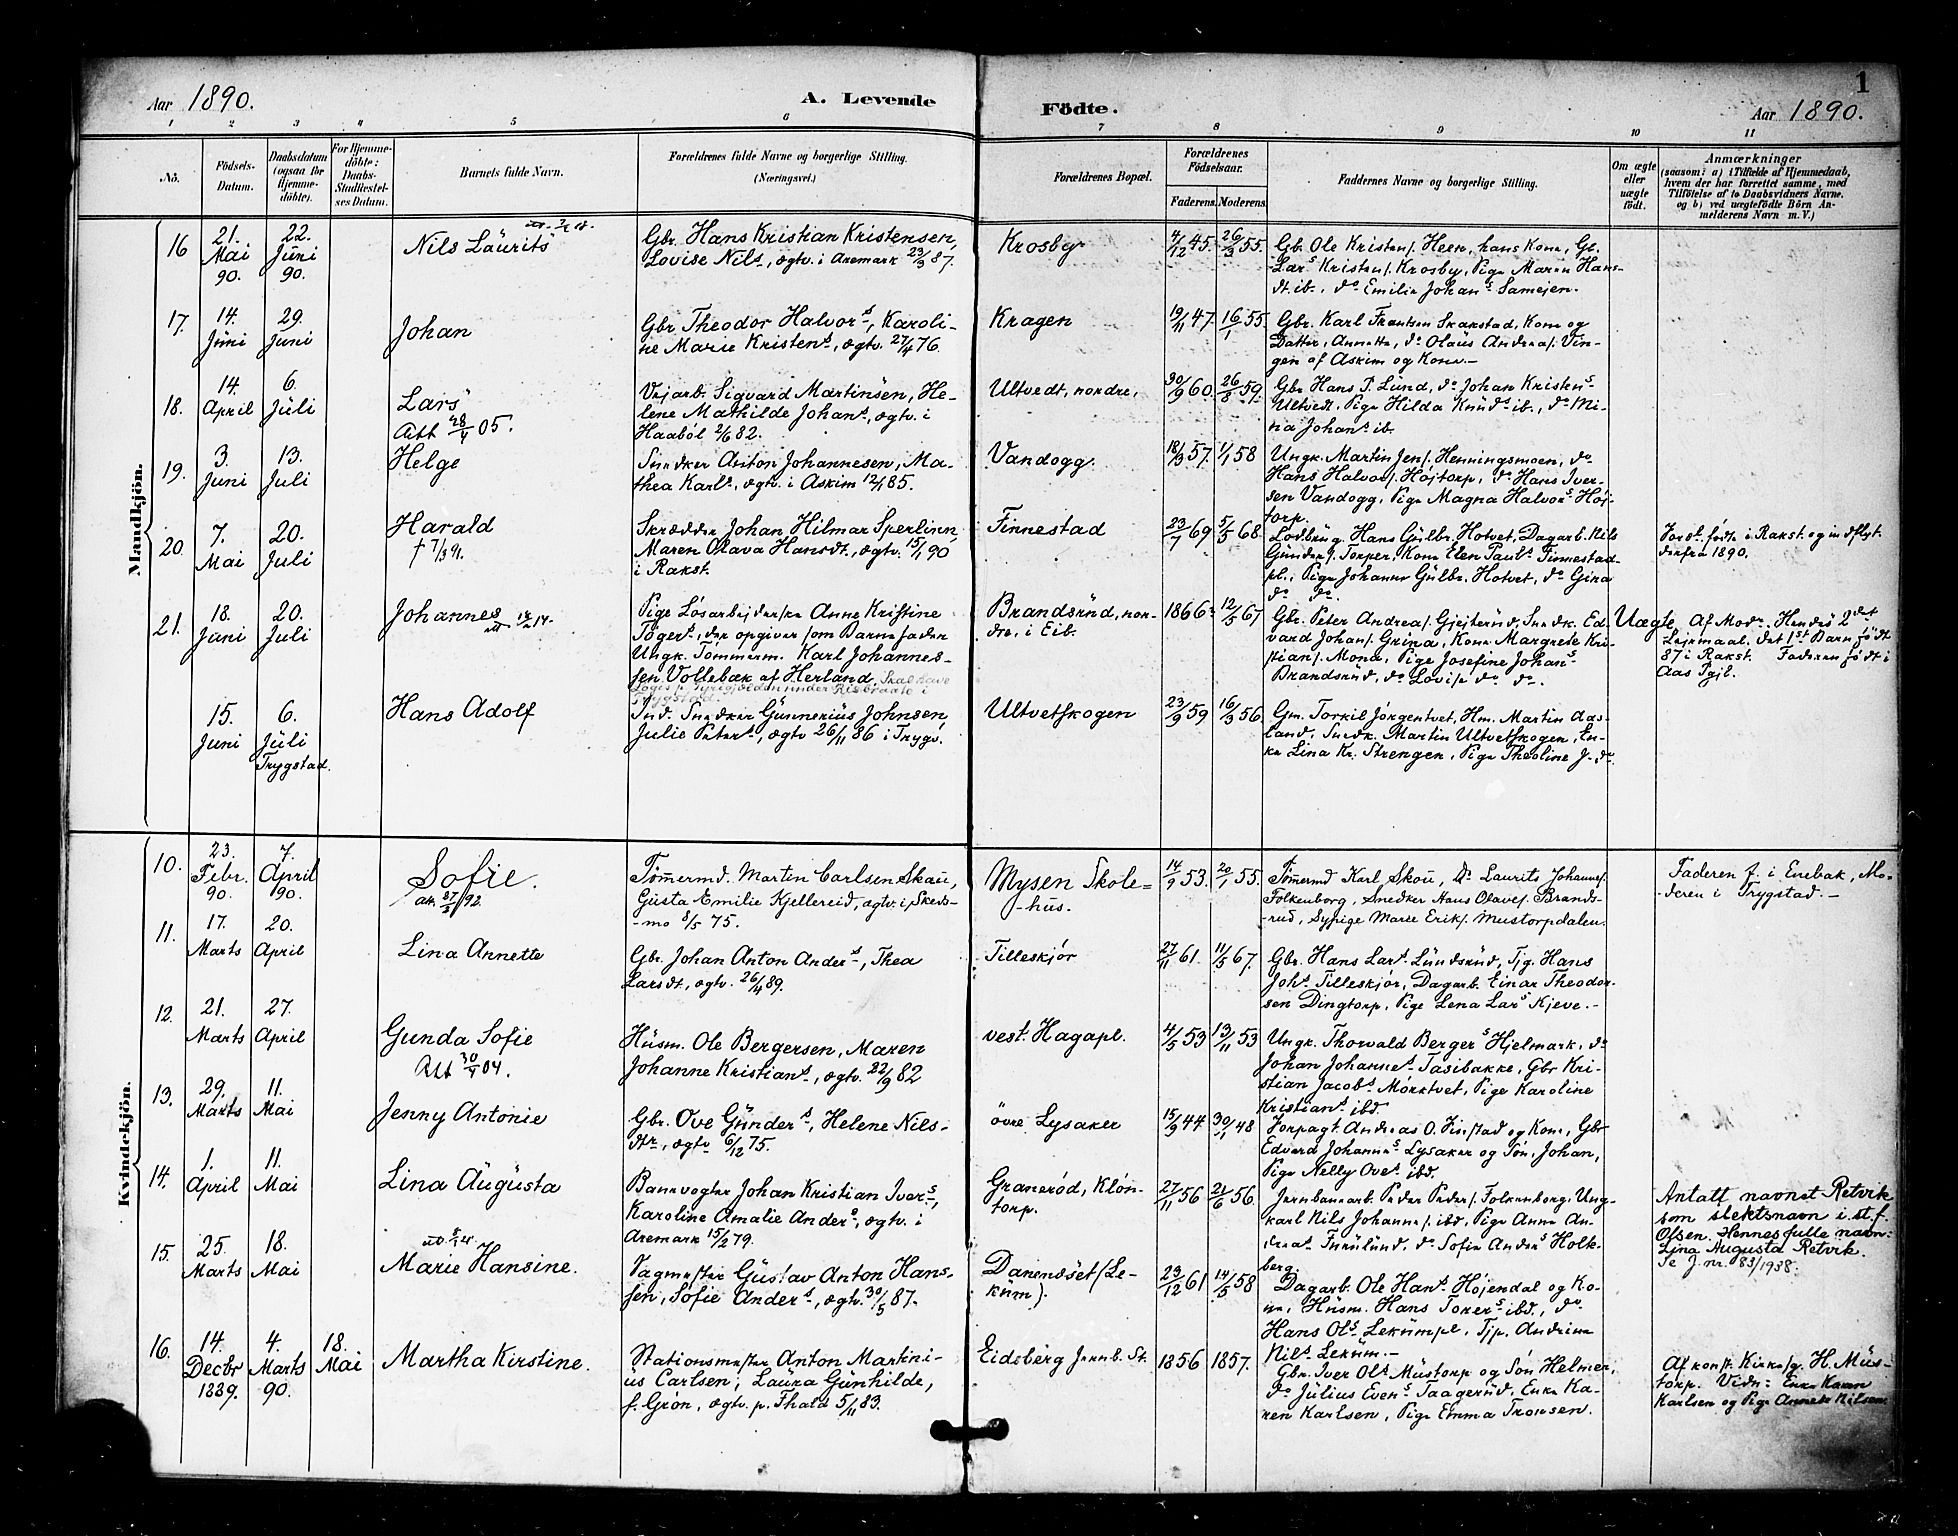 1
Aar 1890.
A. Levende
Födte.
Aar 1890.
1 2 3 4 5 6 7 8 9 10 11
No.
Födsels-
Datum.
Daabsdatum
(ogsaa for
Hjemme-
döbte).
For Hjemme-
döbte:
Daabs-
Stadfæstel-
ses Datum.
Barnets fulde Navn.
Forældrenes fulde Navne og borgerlige Stilling.
(Næringsvei.)
Forældrenes Bopæl.
Forældrenes
Födselsaar.
Faderens.
Moderens.
Faddernes Navne og borgerlige Stilling.
Om ægte
eller
uægte
födt.
Anmærkninger
(saasom: a) i Tilfælde af Hjemmedaab,
hvem der har forrettet samme, med
Tilföielse af to Daabsvidners Navne,
og b) ved uægtefödte Börn An-
melderens Navn m. V.)
Mandkjön.
16
21.
Mai
90.
22.
Juni
90.
Nils Laurits
Gbr. Hans Kristian Kristensen,
Lovise Nils., ægtv. i Aremark 23/3 87.
Krosby
4/12 45.
26/3 55.
Gbr. Ole Kristens. Heen, hans Kone, Gb.
Lars Kristens. Krosby, Pige Maren Hans-
dt. ib., do Emilie Johans Samejen.
17.
14.
Juni
29.
Juni
Johan
Gbr. Theodor Halvors, Karoli-
ne Marie Kristens, ægtv. 27/4 76.
Kragen
19/11 47.
16/1 55.
Gbr. Karl Frantsen Skakstad, Kone og
Datter, Annette, do Olaus Andreas. Vin-
gen af Askim og Kone.-
18.
14.
April
6.
Juli
Lars
Att 28/4 05.
Vejarb. Sigvard Martinsen, He-
lene Mathilde Johans, ægtv. i
Haaböl 2/6 82.
Ultvedt, nordre,
30/9 60.
26/8 59.
Gbr Hans P. Lund, do Johan Kristens
Ultvedt, Pige Hilda Knuds ib., do Mi-
na Johans ib.
19.
3.
Juni
13.
Juli
Helge
Snedker Anton Johannesen, Ma-
thea Karls, ægtv. i Askim 12/1 85.
Vandogg.
18/3 57.
1/1 58
Ungk. Martin Jens. Henningsmoen, do
Hans Halvors. Højtorp, do Hans Iver-
sen Vandogg, Pige Magna Halvors Høj-
torp.
20.
7.
Mai
20.
Juli
Harald
† 7/3 91.
Skrædder Johan Hilmar Sperlinn,
Maren Olava Hansdt., ægtv. 15/1 90
i Rakst.
Finnestad
23/7 69
5/5 68.
Lodbrug. Hans Gulbr. Hotvet, Dagarb. Nils
Gunders. Torper, Kone Elen Pauls Finnestad-
pl., Pige Johanne Gulbr. Hotvet, do Gina
do do.
Forst. födte i Rakst. og indflyt.
derfra 1890.
21.
18.
Juni
20.
Juli
Johannes
Pige Løsarbejderske Anne Kristine
Tögers, der opgiver som Barnefader
Ungk. Tömmerm. Karl Johannes-
sen Vollebæk af Herland.
Brandsrud, nor-
dre, i Eib.
1866
12/5 67
Gbr. Peter Andreas. Gjejterud, Snedk. Ed-
vard Johans. Grina, Kone Margrete Kri-
stians. Mona, Pige Josefine Johans
Brandsrud, do Lovise do do.
Uægte
Af Modr. Hendes 2det
Lejemaal. det 1st Barn födt
87 i Rakst. Faderen födt i
Aas Pgjl.
15.
Juni
6.
Juli
Trygstad.
Hans Adolf
Ind. Snedker Gunnerius Johnsen,
Julie Peters, ægtv 26/11 86 i Trygs.
Ultvetskogen
23/9 59
16/3 56.
Gm. Torkil Jörgentvet, Hm. Martin Aas-
land, Snedk. Martin Ultvetskogen, En-
ke Lina Kr. Strengen, Pige Theoline J. do
Kvindekjön.
10.
23.
Febr.
90.
7.
April
90.
Sofie.
Tömermd. Martin Carlsen Skau,
Gusta Emilie Kjellereid, ægtv. i Skeds-
-mo 8/5 75.
Mysen Skole-
-hus.
14/9 53.
20/1 55.
Tömermd Karl Skou, do Laurits Johannes.
Folkenborg, Snedker Hans Olaves. Brands-
rud, Sypige Marie Eriks. Mustorpdalen.
Faderen f. i Enebak, Mo-
deren i Trygstad.-
11.
17.
Marts
20.
April
Lina Annette
Gbr. Johan Anton Anders, Thea
Larsdt, ægtv. 26/4 89.
Tilleskjör
27/11 61.
11/5 67.
Gbr. Hans Lars. Lundsrud, Tjg. Hans
Johs Tilleskjör, Dagarb. Einar Theodor-
sen Dingtorp, Pige Lena Lars Kjeve.-
12.
21.
Marts
27.
April
Gunda Sofie
Att 30/4 04.
Husm. Ole Bergersen, Maren
Johanne Kristians, ægtv. 22/9 82
vest. Hagapl.
4/5 53
13/11 53
Ungk. Thorvald Bergers Hjelmark, do
Johan Johannes Tasibakke, Gbr Kri-
stian Jacobs Mörktvet, Pige Karoline
Kristians ibd.
13.
29.
Marts
11.
Mai
Jenny Antonie
Gbr. Ove Gunders, Helene Nils-
dtr., ægtv 6/12 75.
övre Lysaker
15/9 44
30/11 48
Forpagt. Andreas O. Finstad og Kone, Gbr
Edvard Johannes Lysaker og Søn, Johan,
Pige Nelly Oves ibd.
14.
1.
April
11.
Mai
Lina Augusta
Banevogter Johan Kristian Ivers,
Karoline Amalie Anders, ægtv. i
Aremark 15/2 79.
Granerød, Klön-
torp.
27/11 56
21/6 56.
Jernbanearb. Peder Peders. Folkenborg, Ung-
karl Nils Johannes. ibd, Pige Anna An-
dreas Furulund, do Sofie Anders Holk-
berg.
Antatt navnet Retvik
som slektsnavn i st.f.
Olsen. Hennes fulle navn:
Lina Augusta Retvik.
Se J.nr. 83/1938.
15.
25.
Marts
18.
Mai
Marie Hansine.
Vagmester Gustav Anton Hans-
sen, Sofie Anders, ægtv. 30/5 87.
Danenaset (Le-
kum).
23/12 61
14/5 58
Dagarb. Ole Hans Höjendal og Ko-
ne, Husm. Hans Torers ibd., do
Hans Ols Lekumpl., Tjp. Andrine
Nils Lekum.-
16.
14.
Decbr
1889.
4.
Marts
90.
18.
Mai
Martha Kirstine.
Stationsmester Anton Martini-
us Carlsen; Laura Gunhilde,
f. Grön, ægtv. p. Thald 5/11 83.
Eidsberg Jernb. St.
1856
1857.
Gbr. Iver Ols Mustorp og Søn Helmer,
do Julius Evens Taagerud, Enke Ka-
ren Karlsen, Pige Emma Tronsen.
Af konst. Kirkesg. H. Mus-
torp. Vidn: Enke Karen
Karlsen og Pige Annette Nilsen.